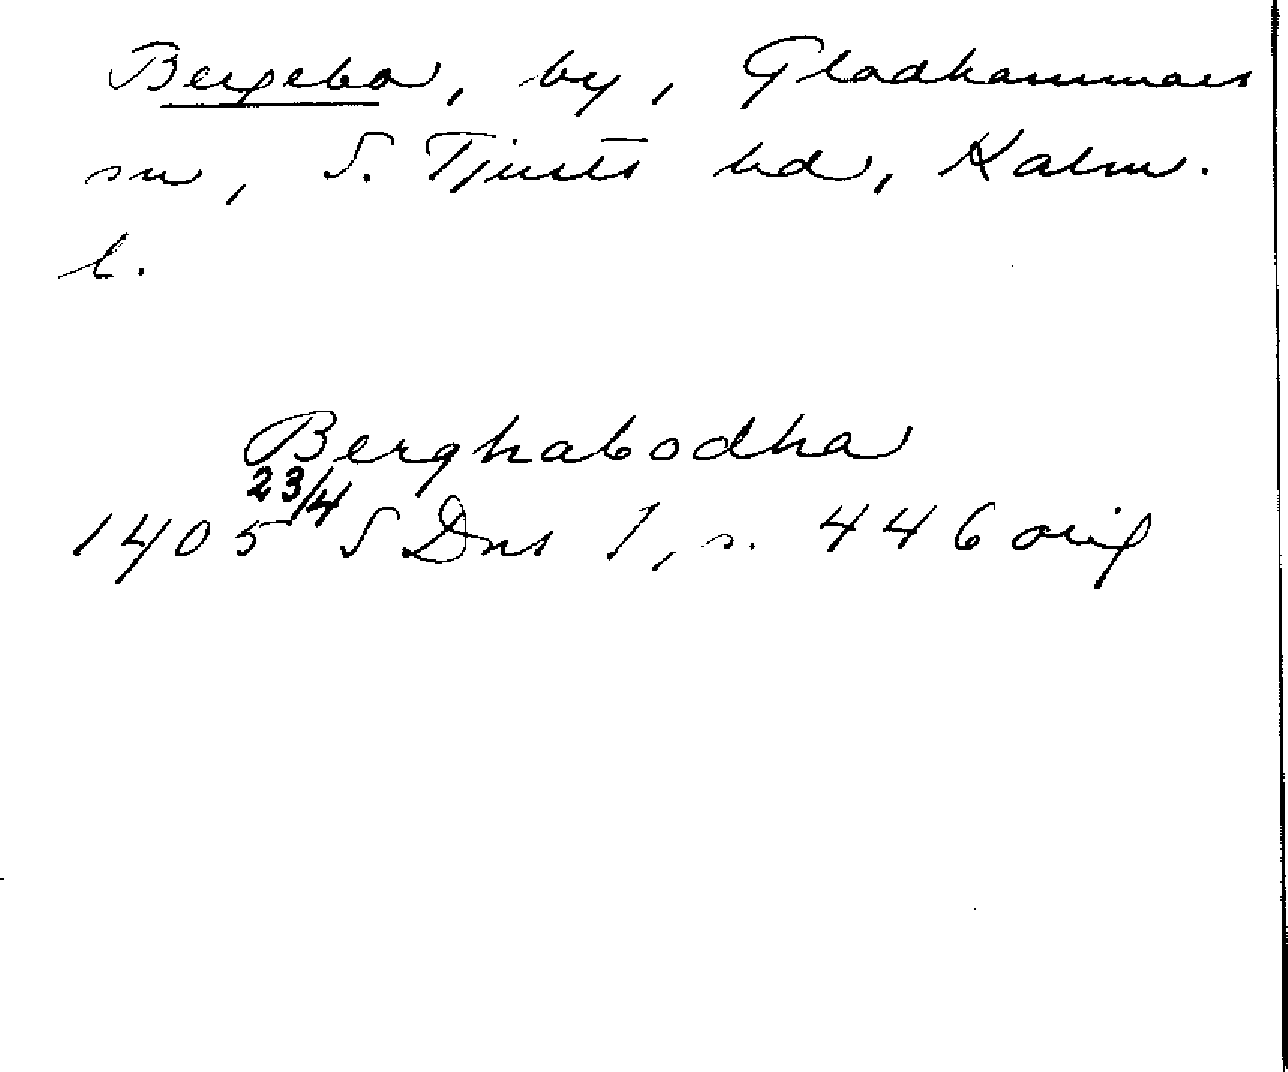 Bergebo, by, Gladhammars
sn, S. Tjusts hd, Kalm.
l.
Berghabodha
1405 23/4 SDns 1, s. 446 orig